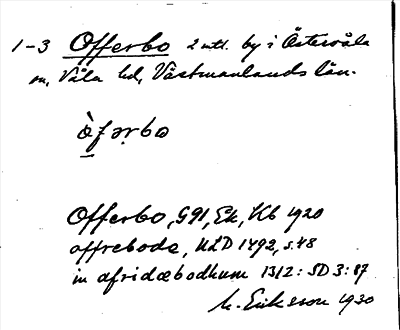 1-3 Offerbo 2 utl. by i Östervåla
sn, Våla hd, Västmanlands län.
òfərbo
Offerbo, G91, Ek, Kb 1920
offreboda, ULD 1492, s. 48
in afridæbodhum 1312: SD 3: 87
M. Eriksson 1930